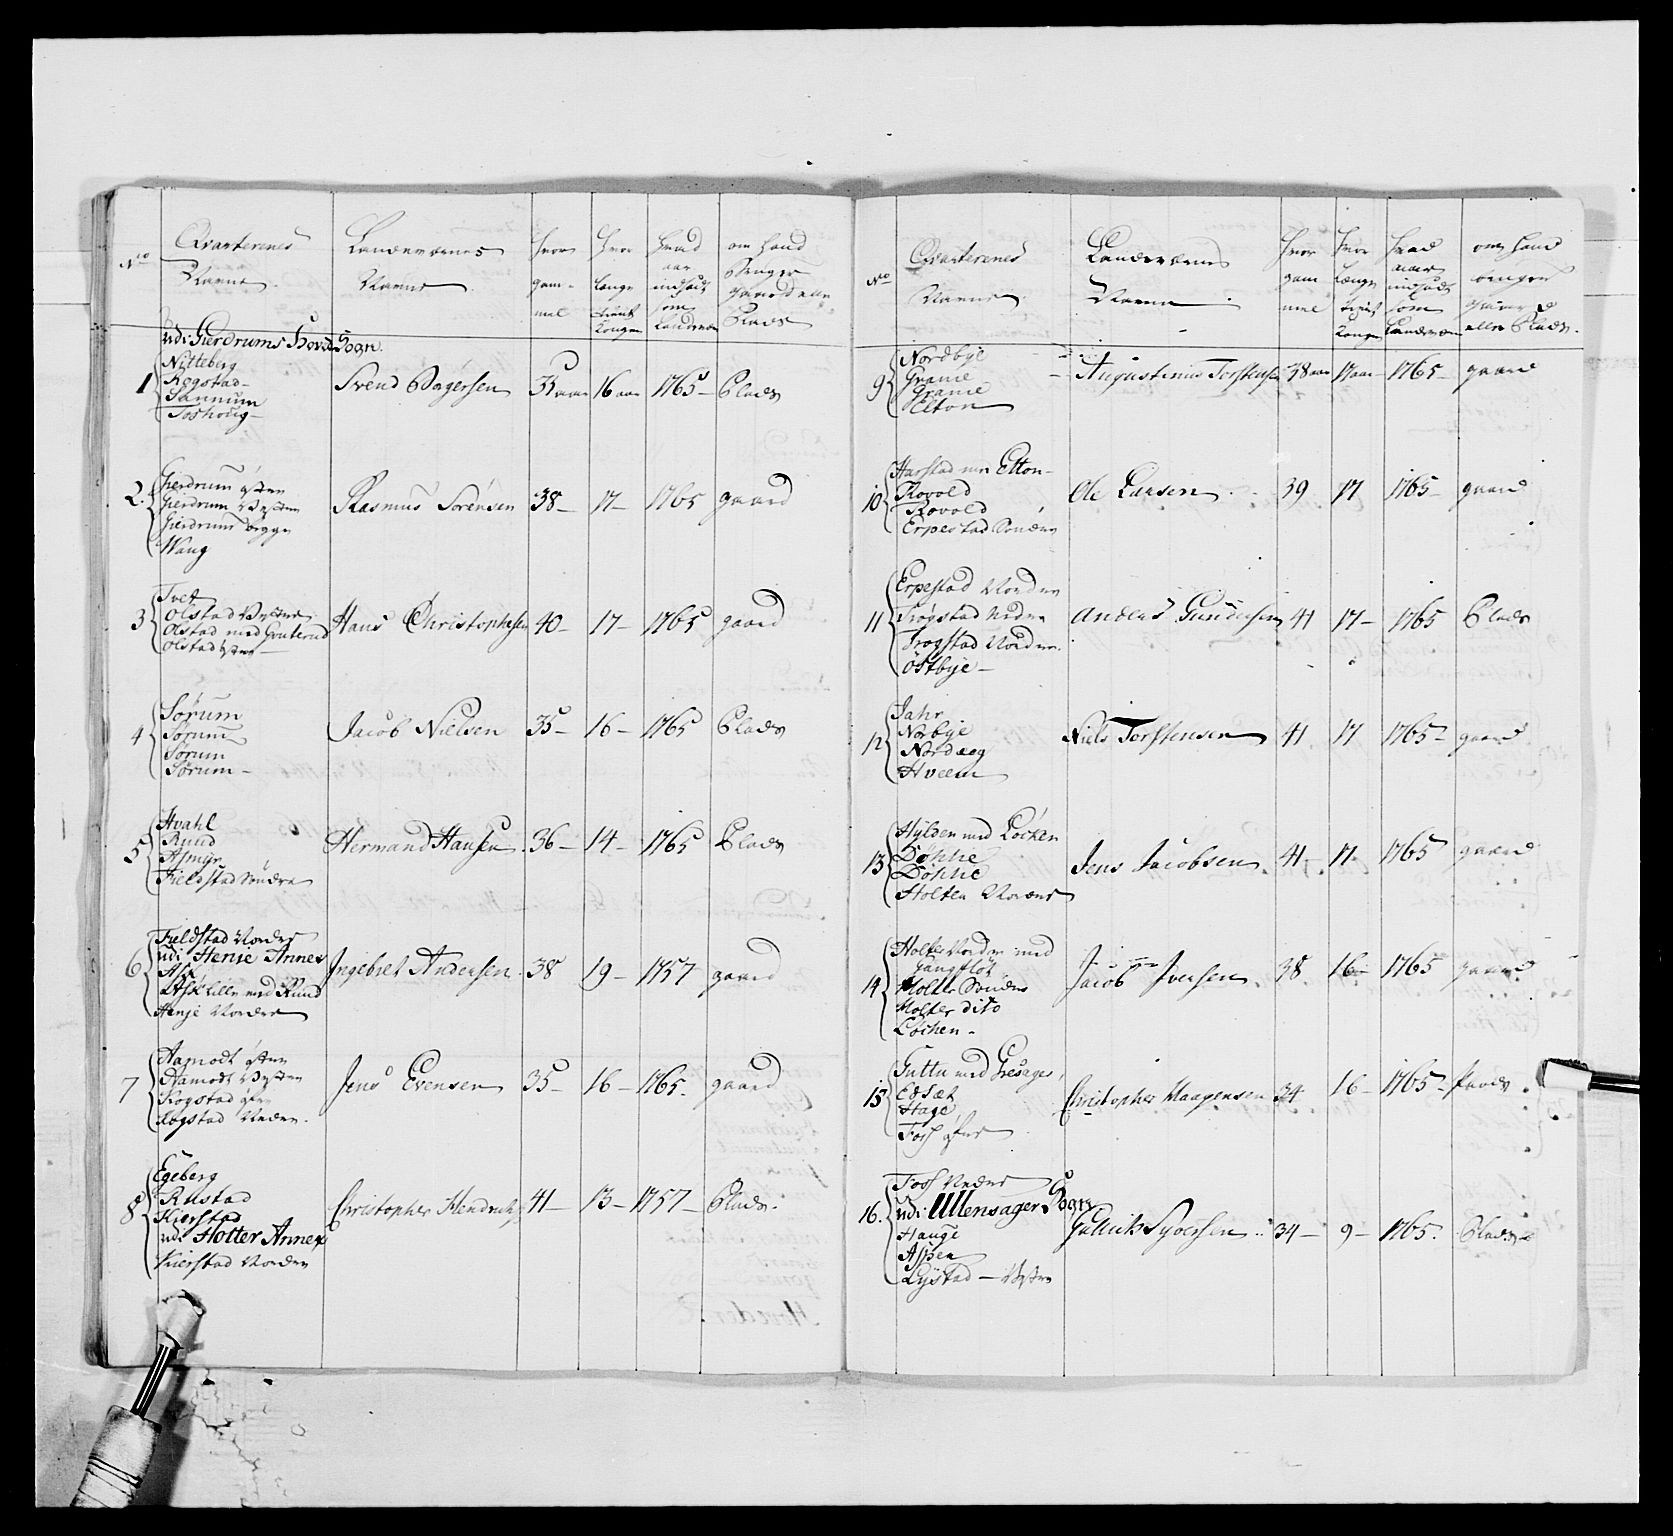 No
Qvarterenes
Navne
Landeværnes
Navne
hvor
gam-
mel
hvor
længe
tient
Kongen
hvad
aar
indsadt
som
Landvær
om hand
Plads
udi Gierdrums Hoved Sogn.
1
Nitteberg
Rogstad
Fannum
Toshoug
Svend Bagersen 35 aar 16 aar 1765 Plads
2.
Gierdrum østre
Gierdrum Vestre
Gierdrum
Wang
Rasmus Sørensen 38 17 1765 gaard
3
Tvet
Olstad Vestre
Olstad med
Olstad
Hans Christophersen 40 17 1765 gaard
4
Sørum
Sørum
Sørum
Sørum
Jacob Nielsen 35 16 1765 Plads
5
Hvahl
Ruud
Asmyr
Fieldstad Søndre
Hermand Hansen 36 14 1765 Plads
6
Fieldstad Nordre
udi Henie Annex
Ask
Ask lille med Ruud
Henje Nordre
Ingebret Andersen 38 19 1757 gaard
7
Aamodt østre
Aamodt Vestre
Rogstad
Rogstad Nedre
Jens Evensen 35 16 1765 gaard
8
Egeberg
Rustad
Kierstad
udi Holter Annex
Kierstad Nordre
Christopher Hendrichs 41 13 1757 Plads
No
Qvarterenes
Navne
Landeværnes
Navne
hvor
gam
mel
hvor
længe
tient
Konge
hvad
aar
indsadt
som
Landevær
om hand
gaard
eller Plads.
9
Nordbye
Granie
Granie
Elton
Augustinus Torstensen 38 aar 17 aar 1765 gaard
10
Harstad med Elton
Rovold
Rovold
Erpestad Søndre
Ole Larsen 39 17 1765 gaard
11
Erpestad Nordre
Trøgstad Nedre
Trøgstad Nordre
Østbye
Anders Gundersen 41 17 1765 Plads
12
Jahr
Norbye
Hveem
Niels Torstensen 41 17 1765 gaard
13
Hylden med Løcken
Døhlie
Døhlie
Holter Nordre
Jens Jacobsen 41 17 1765 gaard
14
Holter Nordre med
Gangfløt
Holter Søndre
Holter dito
Løchen
Jacob Iversen 38 16 1765 gaard
15
Tuttu med
Edsæt
Hage
Foss
Christopher Haagensen 34 16 1765 Plads
16.
Foss Nedre
udi Ullensager Sogn
Hauge
Aspen
Lystad Vestre
Gulrich Syversen 34 9 1765. Plads